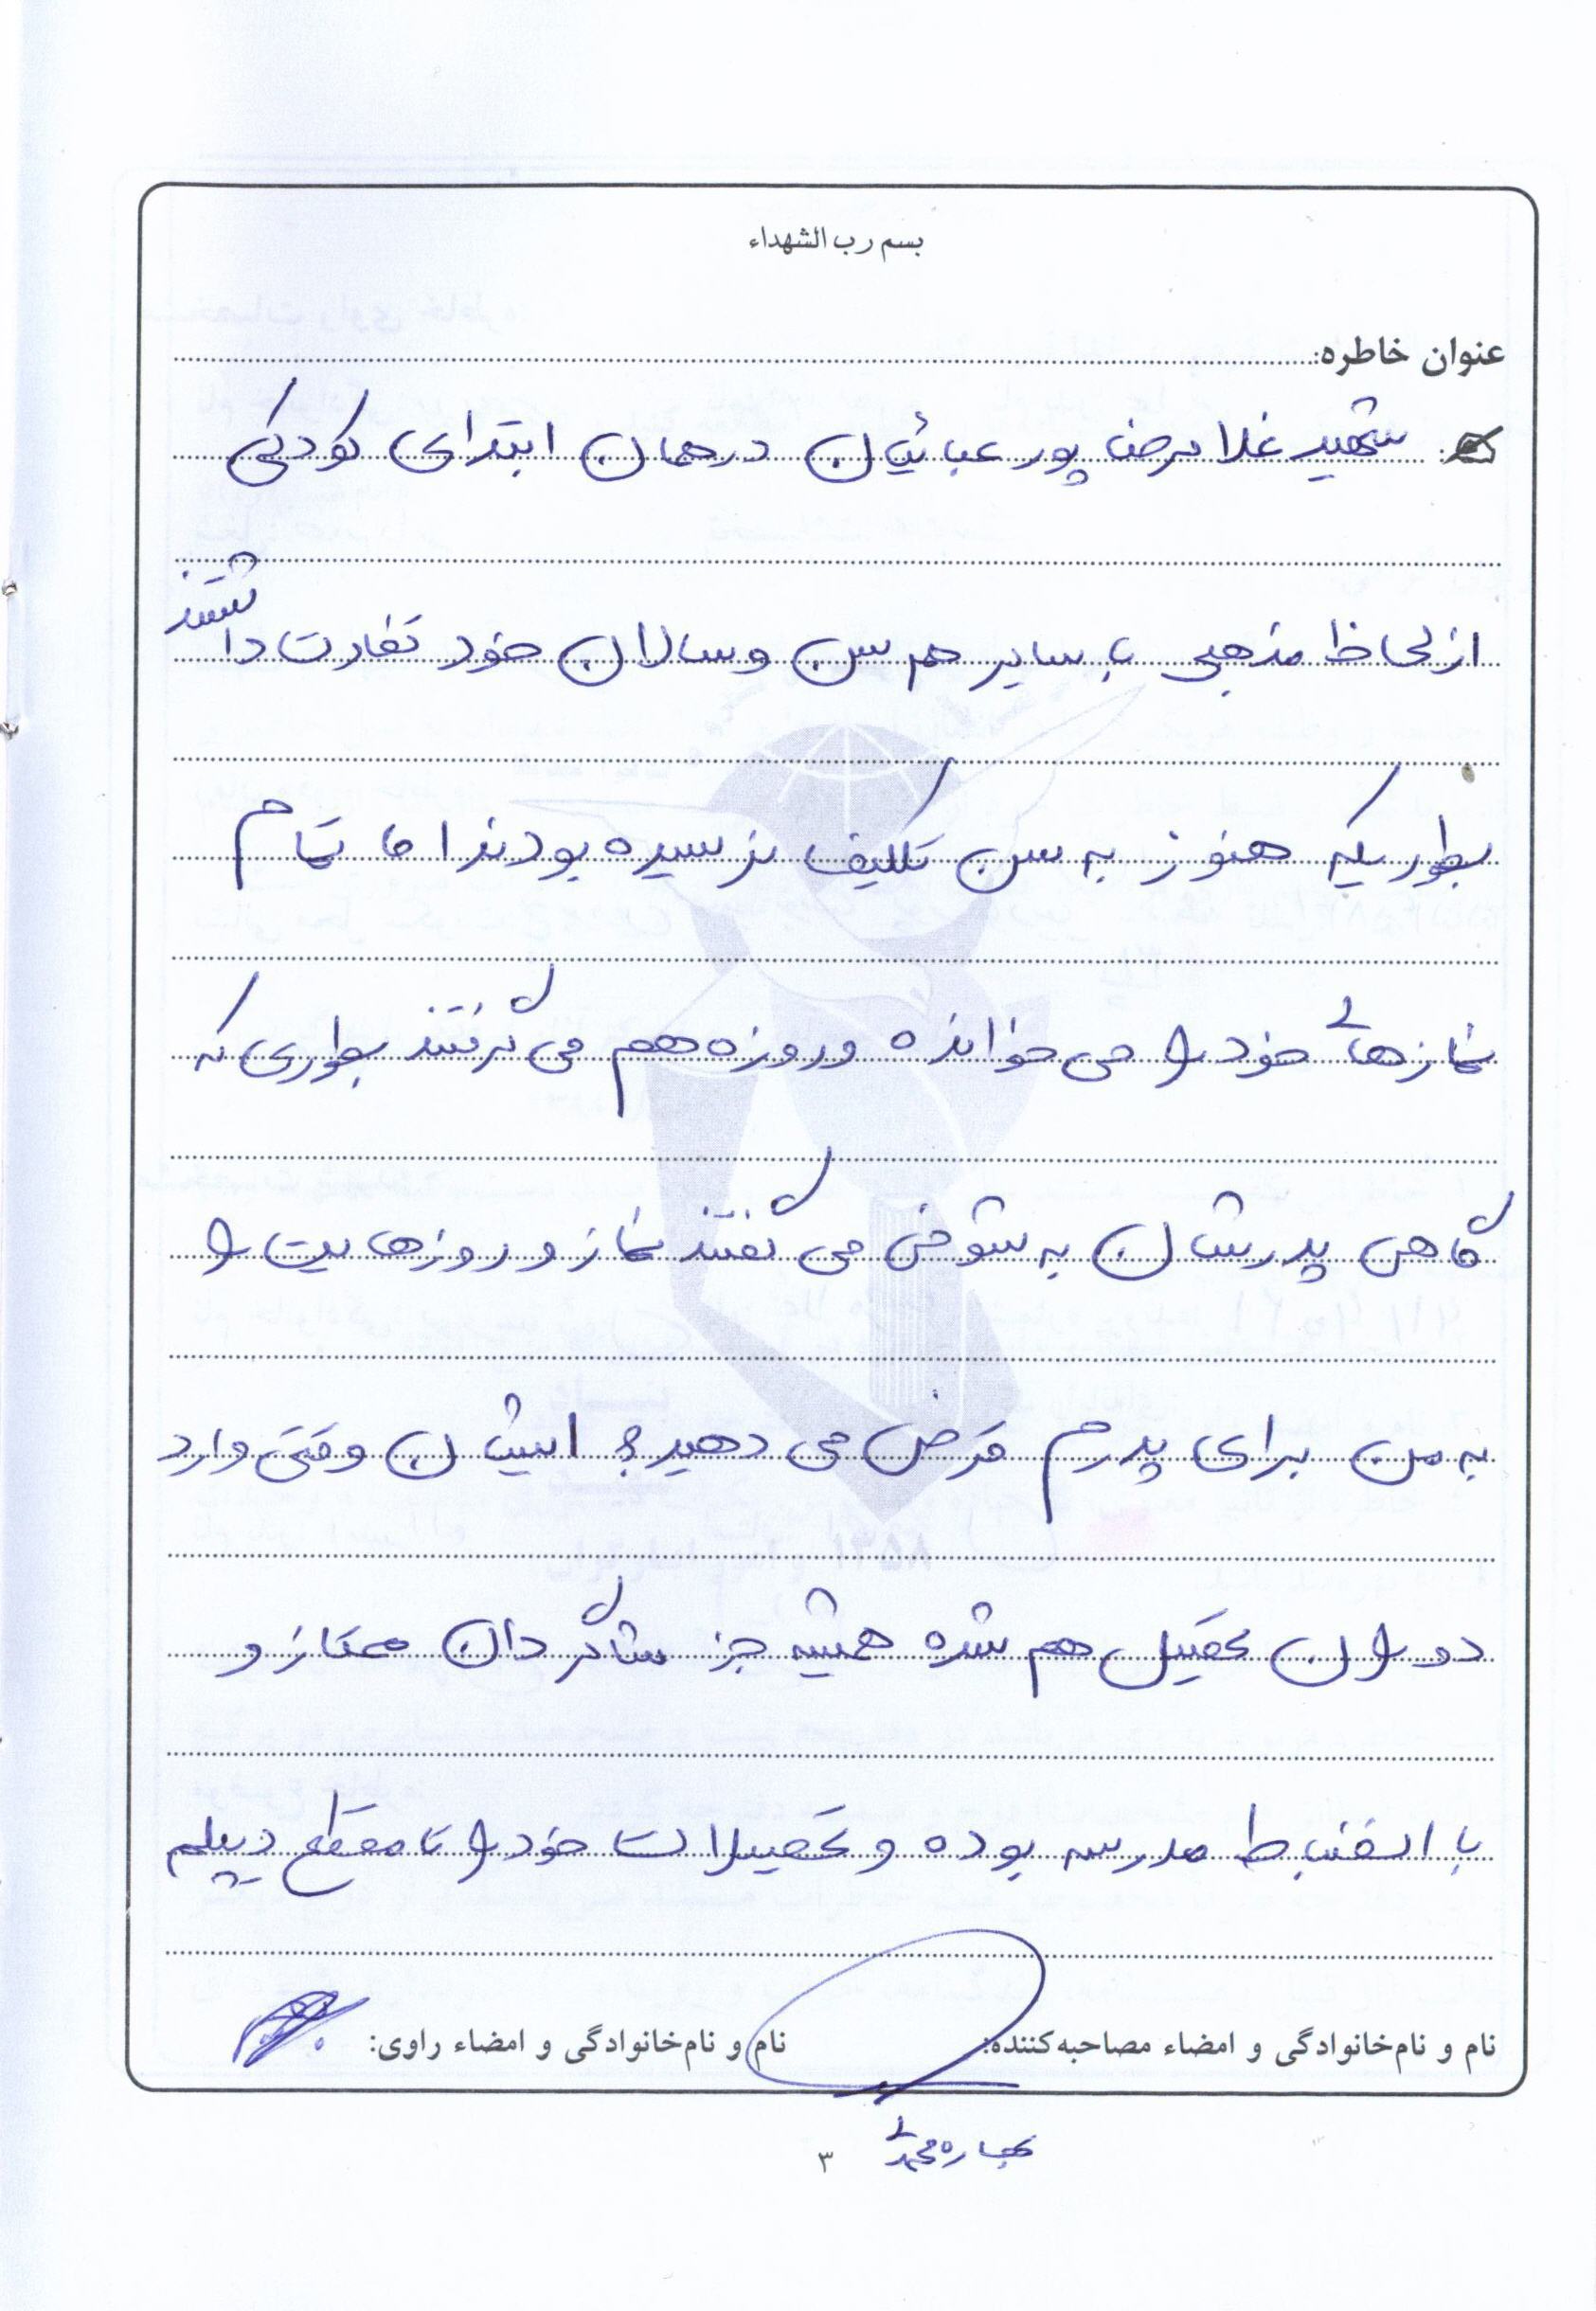 بسم رب الشهداء
عنوان خاطره:
شهید غلامرضا پور عبائیان در همان ابتدای کودکی
از لحاظ مذهبی با سایر هم سن و سالان خود تفاوت داشتند
بطوریکه هنوز به سن تکلیف نرسیده بودند اما تمام
نمازهای خود را می خوانده و روزه هم می گرفتند بطوری که
گاهی پدرشان به شوخی می گفتند نماز و روزهایت را
به من برای پدرم قرض می دهید؟ ایشان وقتی وارد
دوران تحصیل هم شده همیشه جز شاگردان ممتاز و
با انضباط مدرسه بوده و تحصیلات خود را تا مقطع دیپلم
نام و نام‌خانوادگی و امضاء مصاحبه‌کننده: نام و نام‌خانوادگی و امضاء راوی:
۳